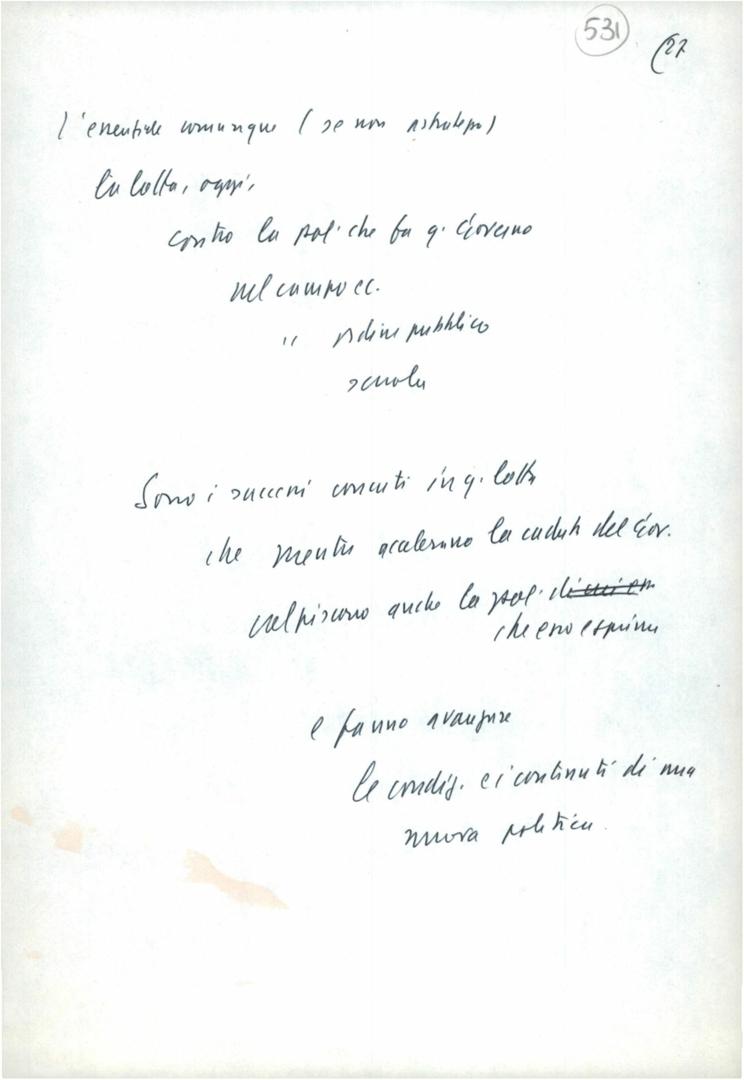 531
(27
L'essenziale comunque (se non
la lotta, oggi,
contro la pol. che fa q. Governo
nel campo ec.
" ordine pubblico
scuola
Sono i successi concreti in q. lotta
che mentre accelerano la caduta del Gov.
colpiscono anche la pol. di cui
che esso esprime
e fanno avanzare
le condiz. e i contenuti di una
nuova politica.